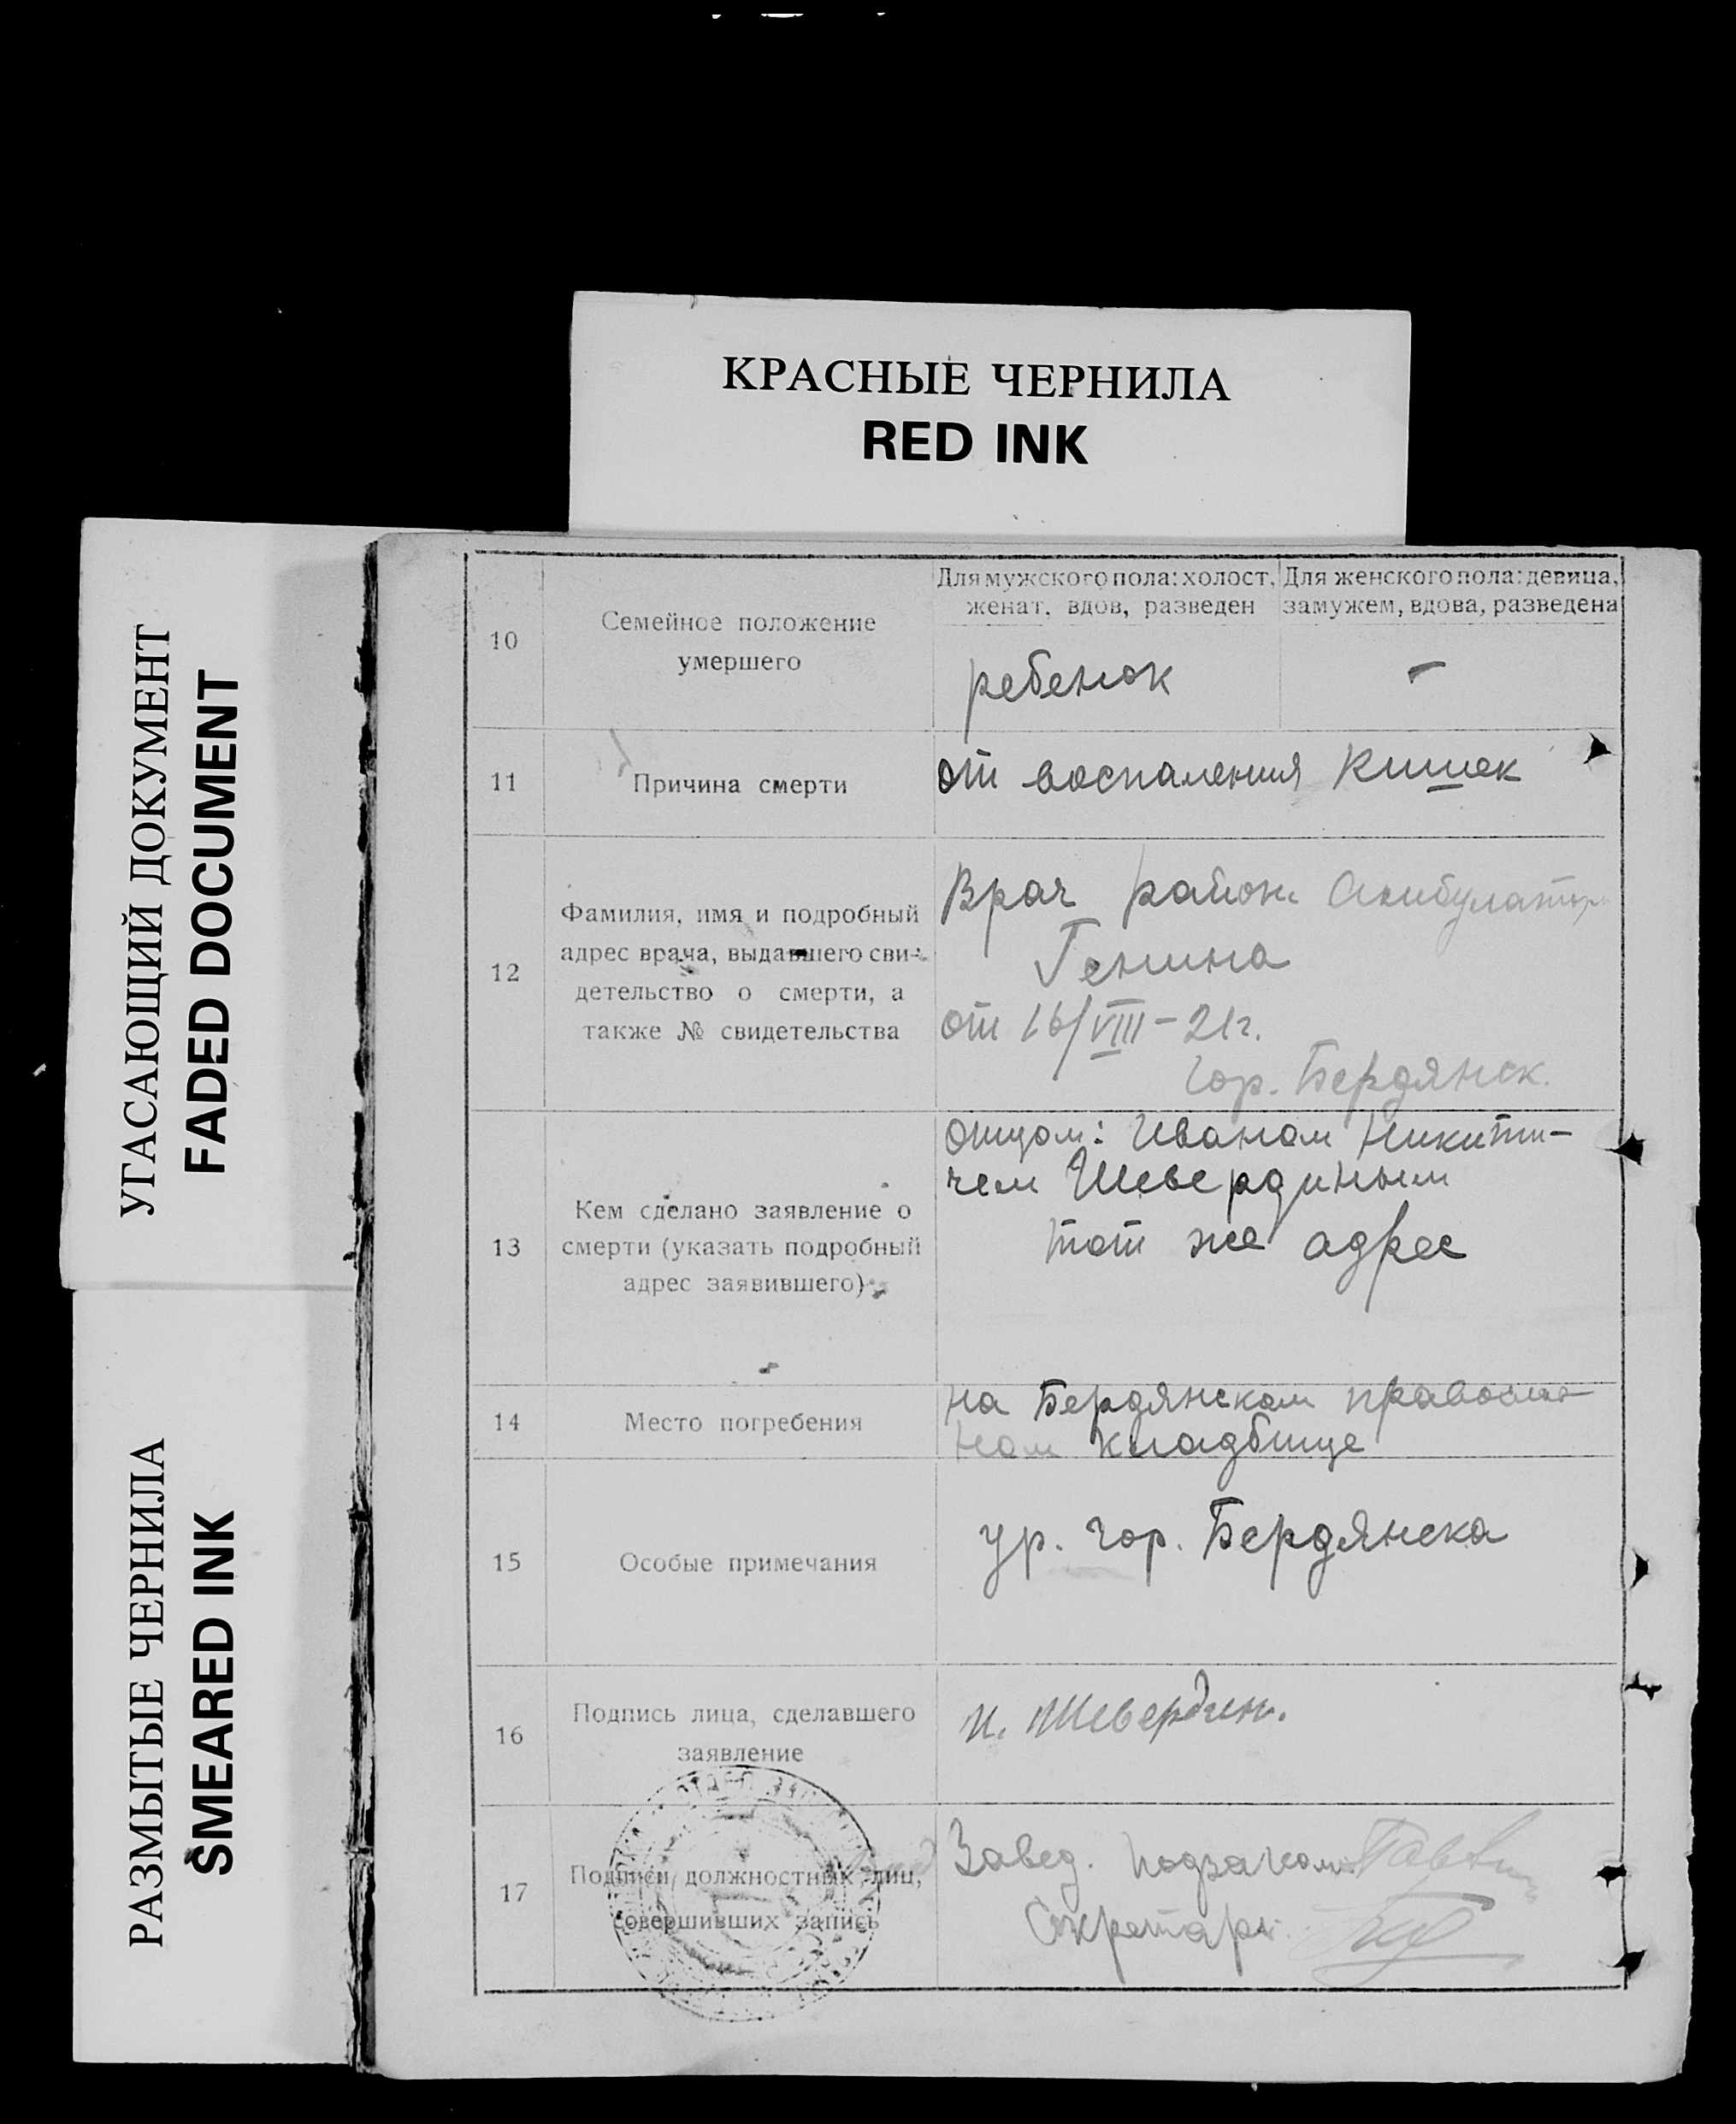 КРАСНЫЕ ЧЕРНИЛА
RED INK
УГАСАЮЩИЙ ДОКУМЕНТ
FADED DOCUMENT
РАЗМЫТЫЕ ЧЕРНИЛА
SMEARED INK
10
Семейное положение
умершего
Для мужского пола: холост,
женат, вдов, разведен
ребенок
Для женского пола: девица,
замужем, вдова, разведена
–
11
Причина смерти
от воспаления кишек
12
Фамилия, имя и подробный
адрес врача, выдавшего сви-
детельство о смерти, а
также № свидетельства
Врач район.
Генина
от 16/VIII – 21г.
гор. Бердянск.
13
Кем сделано заявление о
смерти (указать подробный
адрес заявившего)
отцом: Иваном Никити-
чем Шевердиным
тот же адрес
14
Место погребения
на Бердянском православ-
ном кладбище
15
Особые примечания
ур. гор. Бердянска
16
Подпись лица, сделавшего
заявление
И. Шевердин.
17
Подписи должностных лиц,
совершивших запись
Завед.
Секретарь